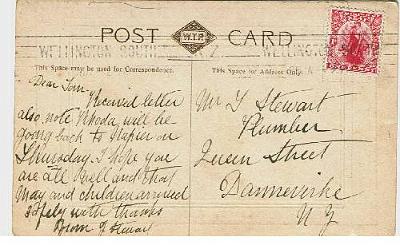 POST CARD
W.T.P.
WELLINGTON SOUTH N Z WELLINGTON
This Space may be used for Correspondence.
This Space for Address Only.
Dear Tom
Received letter
also note will be
going back to Napier on
Thursday. I hope you
are all well and that
May and children arrived
safely with thanks
from J Stewart
Mr T Stewart
Plumber
Queen Street
Dannevirke
N Z